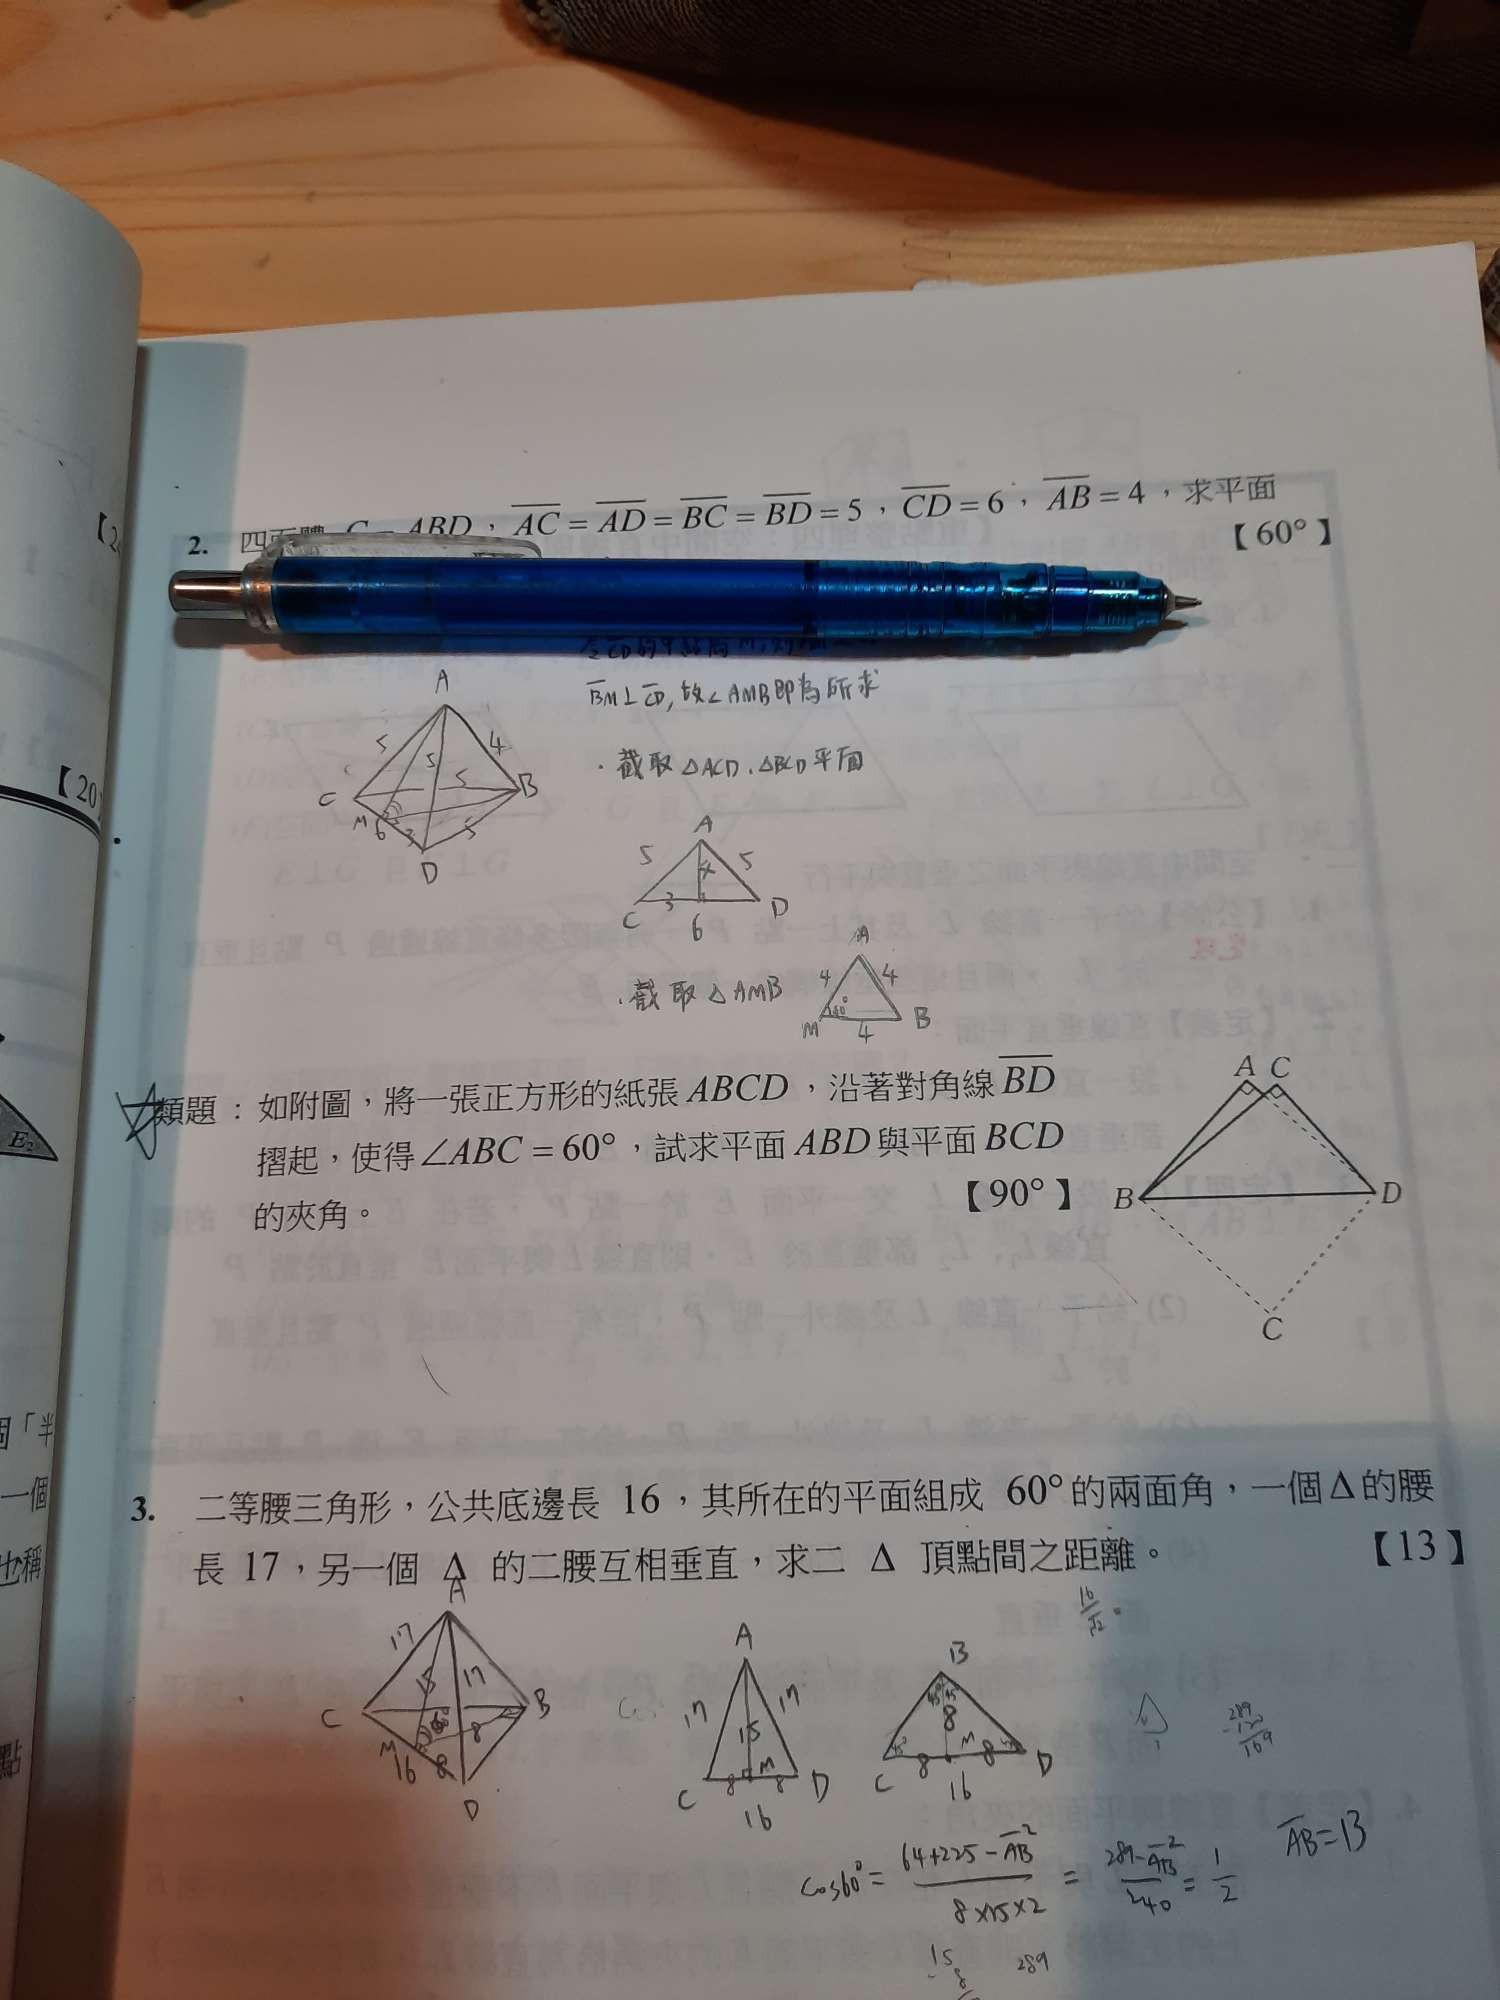 【2
【20】
E₂
個「半
一個
也稱
點
2. 四面體 C－ABD，AC = AD = BC = BD = 5，CD = 6，AB = 4，求平面
【60°】
BM⊥CD, 故∠AMB即為所求
A
5 5 4
5
C B
M 6 3 5
D
·截取△ACD、△BCD平面
A
5 4 5
C 3 D
6
·截取△AMB
A
4 4
M 60° B
4
類題：如附圖，將一張正方形的紙張 ABCD，沿著對角線 BD
摺起，使得∠ABC = 60°，試求平面 ABD 與平面 BCD
的夾角。 【90°】
A C
B D
C
3. 二等腰三角形，公共底邊長 16，其所在的平面組成 60°的兩面角，一個Δ的腰
長 17，另一個 Δ 的二腰互相垂直，求二 Δ 頂點間之距離。 【13】
16/√2
A
17 15 17
C 60° B
M 8
16 8
D
A
17 15 17
C 8 M 8 D
16
B
45° 45°
8
45° M
C 8 8 D
16
289
120
169
cos60° = (64+225−AB²)/(8×15×2) = (289−AB²)/240 = 1/2 AB=13
15
8
289